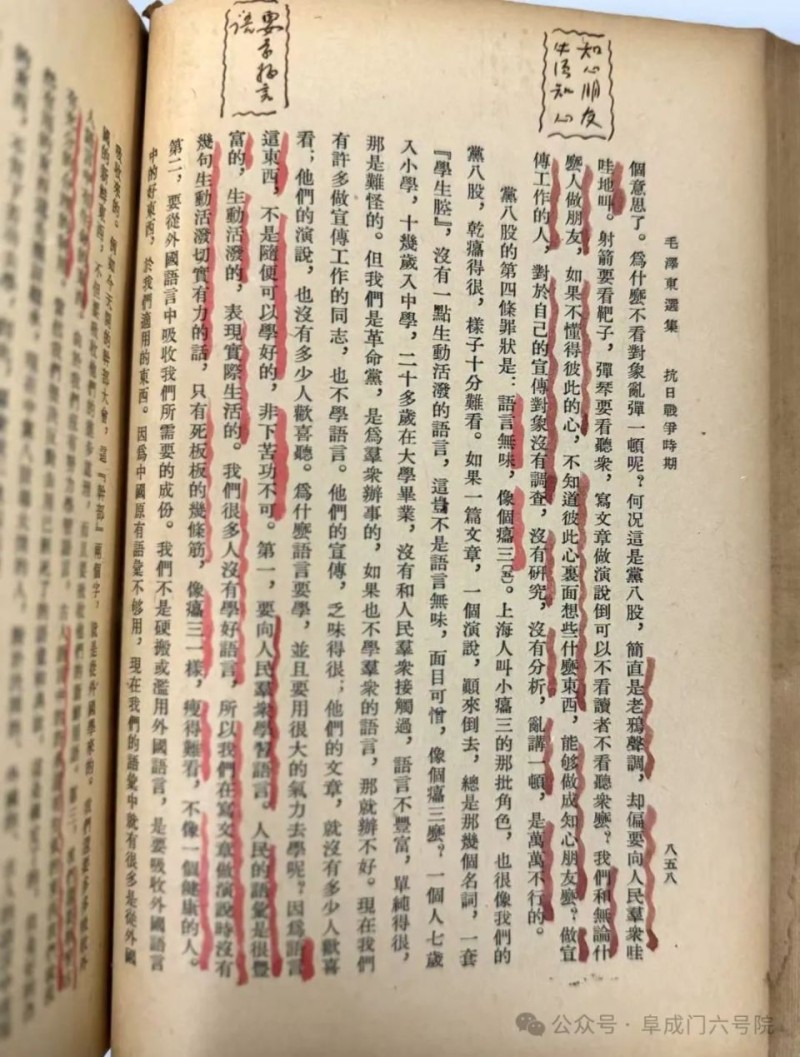 毛澤東選集 抗日戰爭時期
八五八
知心朋友
個意思了。爲什麽不看對象亂彈一頓呢?何况這是黨八股,簡直是老鴉聲調,却偏要向人民羣衆哇
哇地叫。射箭要看靶子,彈琴要看聽衆,寫文章做演說倒可以不看讀者不看聽衆麽?我們和無論什
麽人做朋友,如果不懂得彼此的心,不知道彼此心裏面想些什麽東西,能够做成知心朋友麽?做宣
傳工作的人,對於自己的宣傳對象沒有調查,沒有研究,沒有分析,亂講一頓,是萬萬不行的。
黨八股的第四條罪狀是:語言無味,像個癟三〔五〕。上海人叫小癟三的那批角色,也很像我們的
黨八股,乾癟得很,樣子十分難看。如果一篇文章,一個演說,顚來倒去,總是那幾個名詞,一套
『學生腔』,沒有一點生動活潑的語言,這豈不是語言無味,面目可憎,像個癟三麽?一個人七歲
入小學,十幾歲入中學,二十多歲在大學畢業,沒有和人民羣衆接觸過,語言不豐富,單純得很,
那是難怪的。但我們是革命黨,是爲羣衆辦事的,如果也不學羣衆的語言,那就辦不好。現在我們
有許多做宣傳工作的同志,也不學語言。他們的宣傳,乏味得很;他們的文章,就沒有多少人歡喜
看;他們的演說,也沒有多少人歡喜聽。爲什麽語言要學,並且要用很大的氣力去學呢?因爲語言
這東西,不是隨便可以學好的,非下苦功不可。第一,要向人民羣衆學習語言。人民的語彙是很豐
富的,生動活潑的,表現實際生活的。我們很多人沒有學好語言,所以我們在寫文章做演說時沒有
幾句生動活潑切實有力的話,只有死板板的幾條筋,像癟三一樣,瘦得難看,不像一個健康的人。
第二,要從外國語言中吸收我們所需要的成份。我們不是硬搬或濫用外國語言,是要吸收外國語言
中的好東西,於我們適用的東西。因爲中國原有語彙不够用,現在我們的語彙中就有很多是從外國
吸收來的。例如今天開的幹部大會,這『幹部』兩個字,就是從外國學來的。我們還要多多吸收外
公众号·阜成门六号院